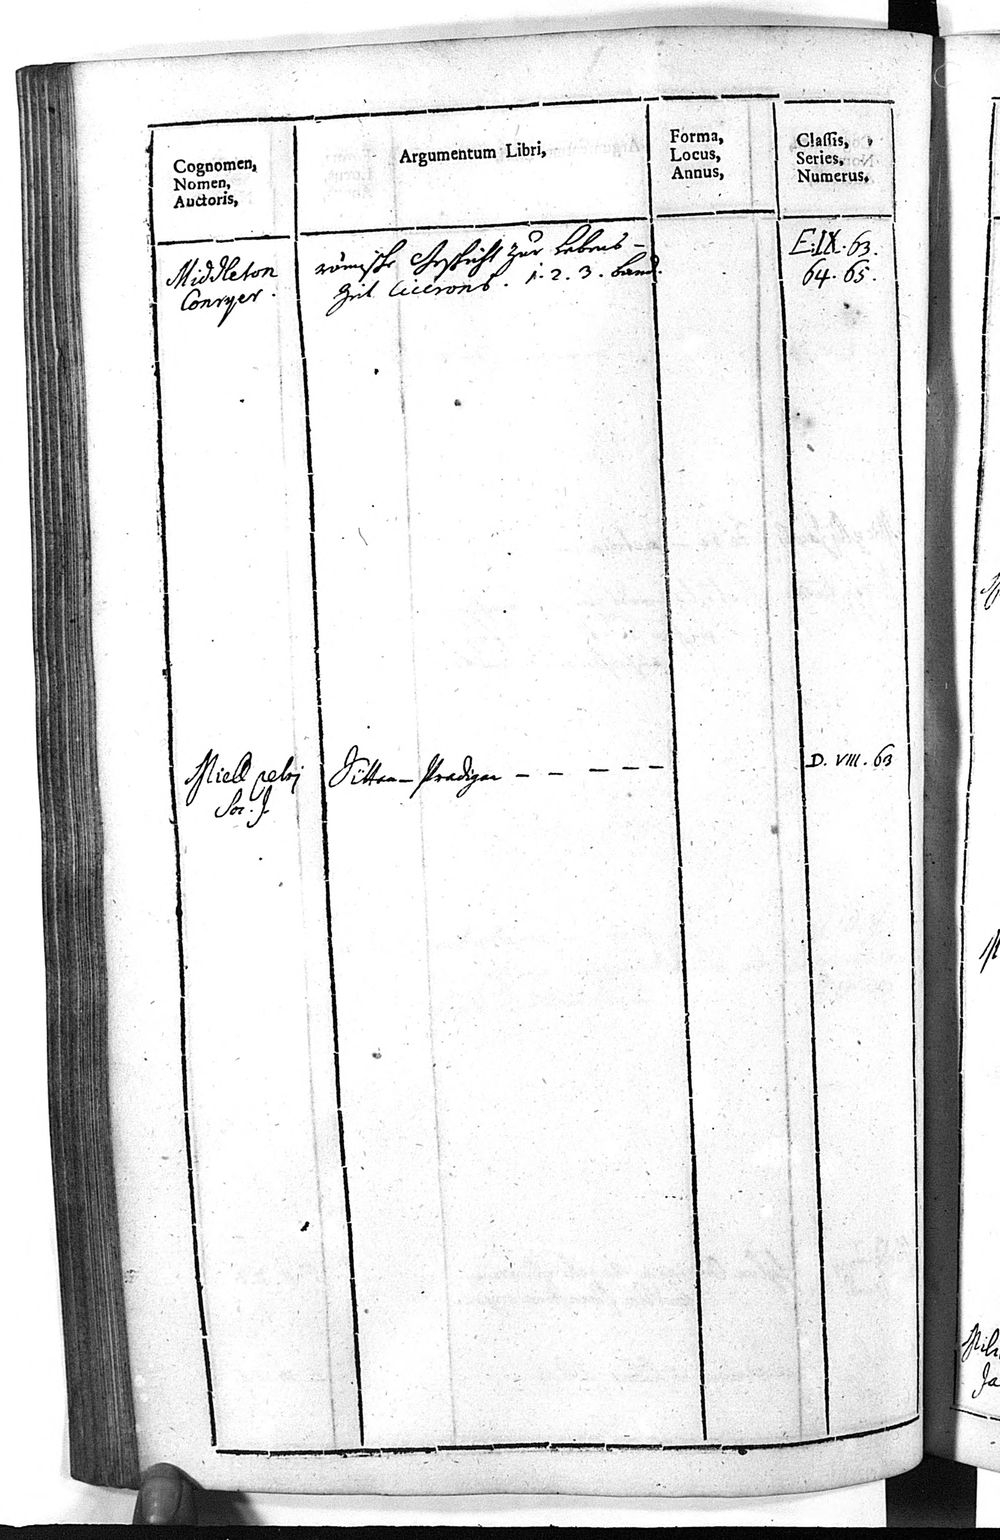 Cognomen,
Nomen,
Auctoris,
Argumentum Libri,
Forma,
Locus,
Annus,
Classis,
Series,
Numerus,
Middleton
Conryer.
römische Geschicht zur Lebens-
Zeit Cicerons. 1. 2. 3. band.
E. IX. 63.
64. 65.
Soc. J.
Sitten-Predigen - - - - -
D. VIII. 63